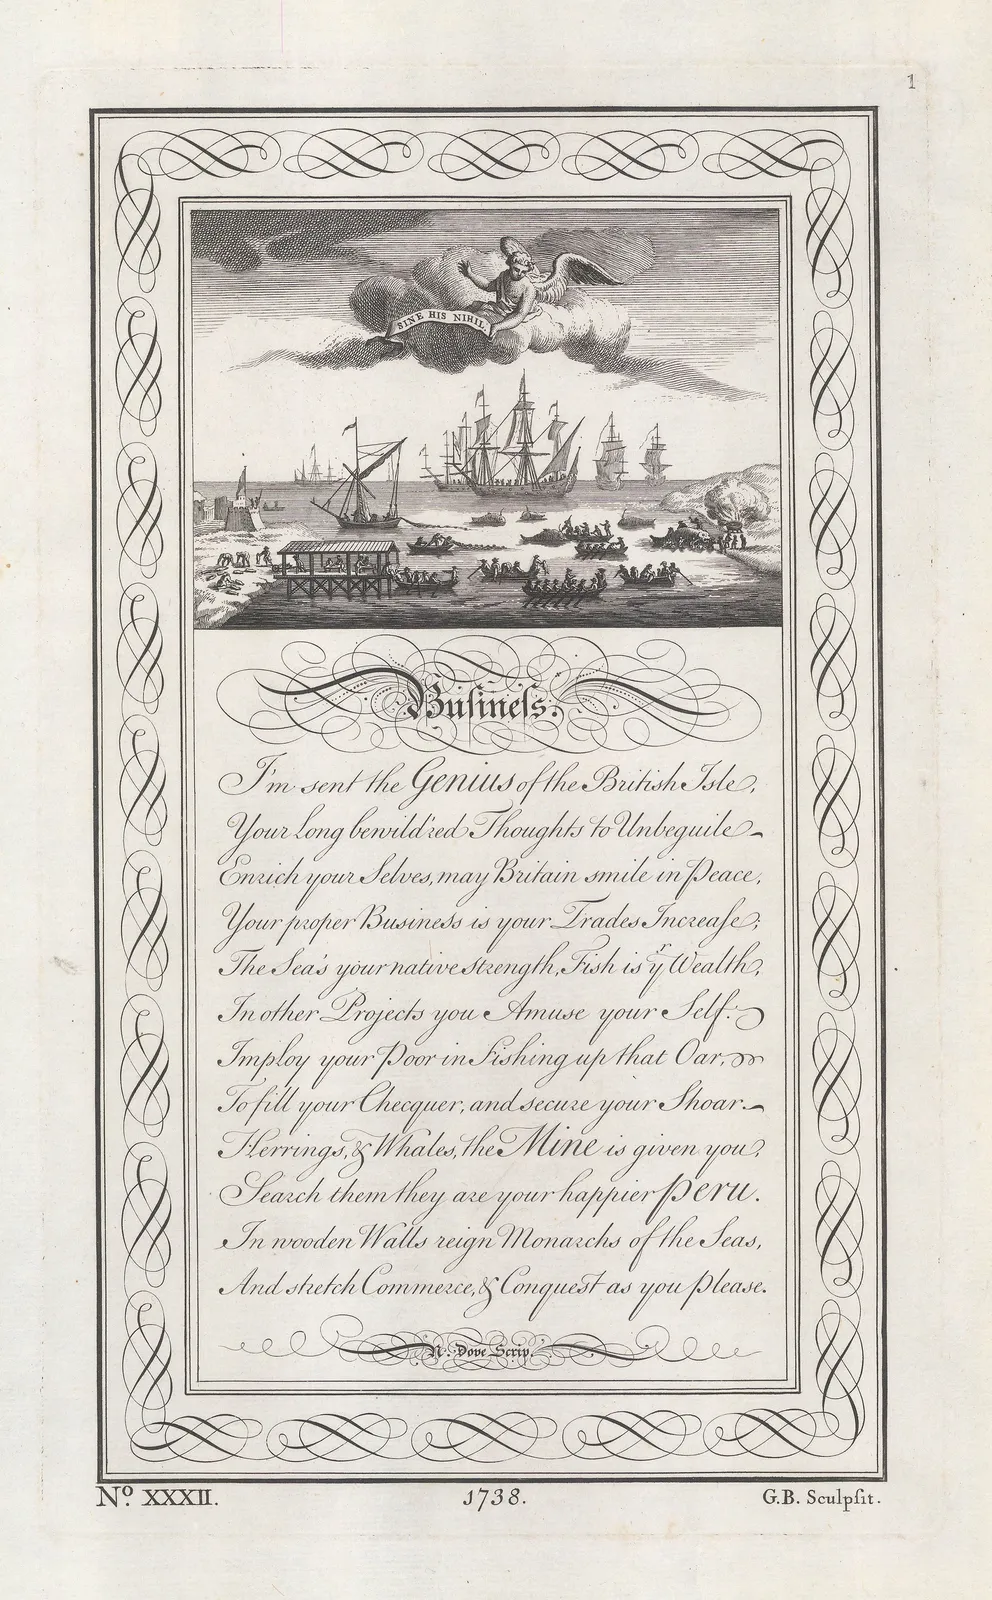 1
SINE HIS NIHIL.
Buſineſs.
I'm sent the Genius of the British Isle,
Your long bewild'red Thoughts to Unbeguile
Enrich your Selves, may Britain smile in Peace,
Your proper Business is your Trades Increase;
The Sea's your native strength, Fish is yʳ Wealth,
In other Projects you Amuse your Self:
Imploy your Poor in Fishing up that Oar,
To fill your Checquer, and secure your Shoar.
Herrings, & Whales, the Mine is given you,
Search them they are your happier Peru.
In wooden Walls reign Monarchs of the Seas,
And stretch Commerce, & Conquest as you please.
N. Dove Scrip.
Nº. XXXII.
1738.
G.B. Sculpſit.